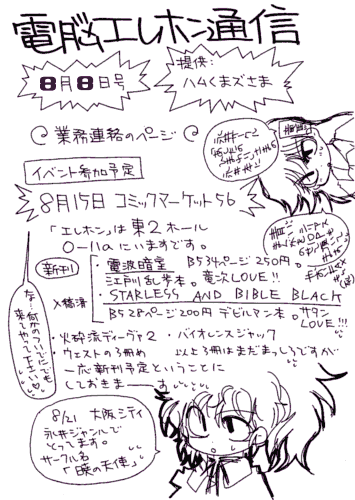 電脳エレホン通信
8月8日号
提供:
ハムくまズさま
業務連絡のページ
イベント参加予定
8月15日 コミックマーケット56
「エレホン」は 東2ホール
O-11aにいますです。
新刊
・電波暗室 B5 34ページ 250円。
江戸川乱歩本。竜次LOVE!!
入稿済
・STARLESS AND BIBLE BLACK
B5 28ページ 200円 デビルマン本。サタン
LOVE!!!
・火砕流ディーヴァ2 ・バイオレンスジャック
・ウエストの3冊め 以上3冊はまだまっしろですが
一応新刊予定ということに
しておきまーす
な…何かのついでにでも
来てやって下さい
8/21 大阪シティ
永井ジャンルで
とってます。
サークル名
「暁の天使」